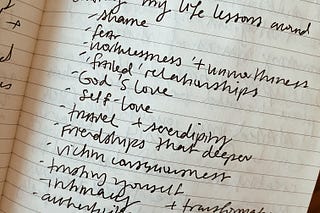 my life lessons around
- shame
- fear
- worthlessness + unworthiness
- failed relationships
- God's love
- self-love
- travel + serendipity
- friendships that deepen
- victim consciousness
- trusting yourself
- intimacy + transformati
- authentici